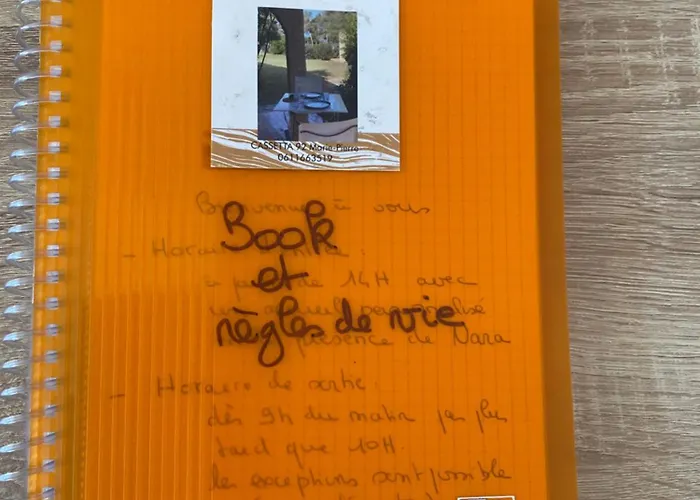 CASSETTA 92 Marie-Pierre
0611663519
Bienvenue à vous
Book
- Horaire d'entrée :
et
à partir de 14H avec
un accueil personnalisé
règles de vie
présence de Nara
- Horaire de sortie :
dès 9h du matin pas plus
tard que 10H.
les exceptions sont possible